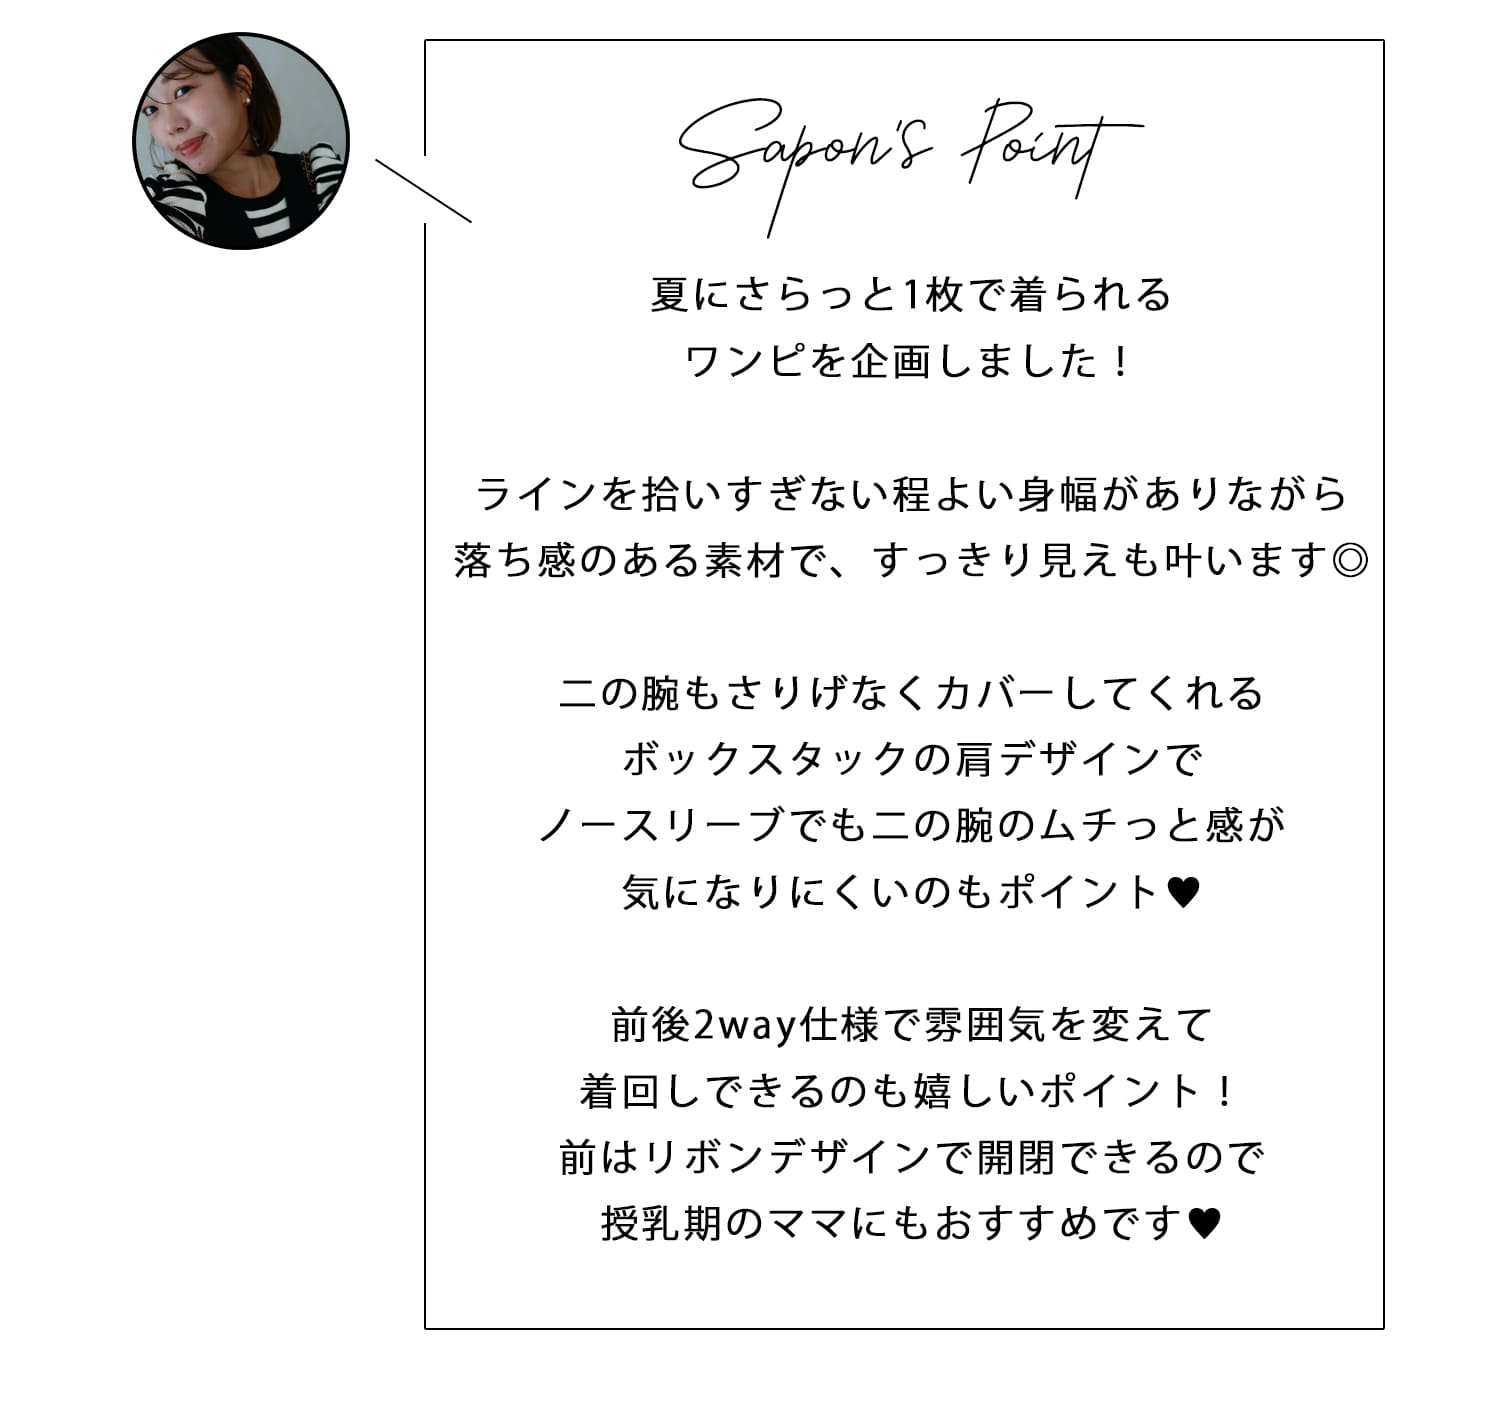 Sapon's Point
夏にさらっと1枚で着られる
ワンピを企画しました！
ラインを拾いすぎない程よい身幅がありながら
落ち感のある素材で、すっきり見えも叶います◎
二の腕もさりげなくカバーしてくれる
ボックスタックの肩デザインで
ノースリーブでも二の腕のムチっと感が
気になりにくいのもポイント♥
前後2way仕様で雰囲気を変えて
着回しできるのも嬉しいポイント！
前はリボンデザインで開閉できるので
授乳期のママにもおすすめです♥